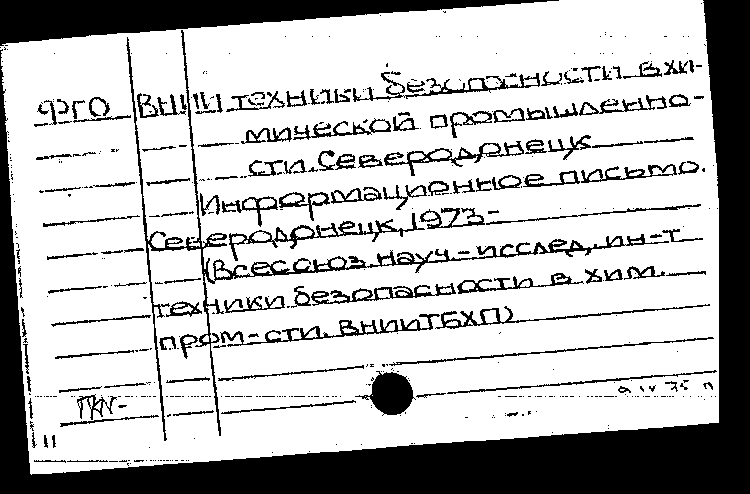 ФГО ВНИИ техники безопасности в хи-
мической промышленно-
сти. Северодонецк
Информационное письмо.
Северодонецк, 1973-
(Всесоюз. науч.-исслед. ин-т
техники безопасности в хим.
пром-сти. ВНИИТБХП)